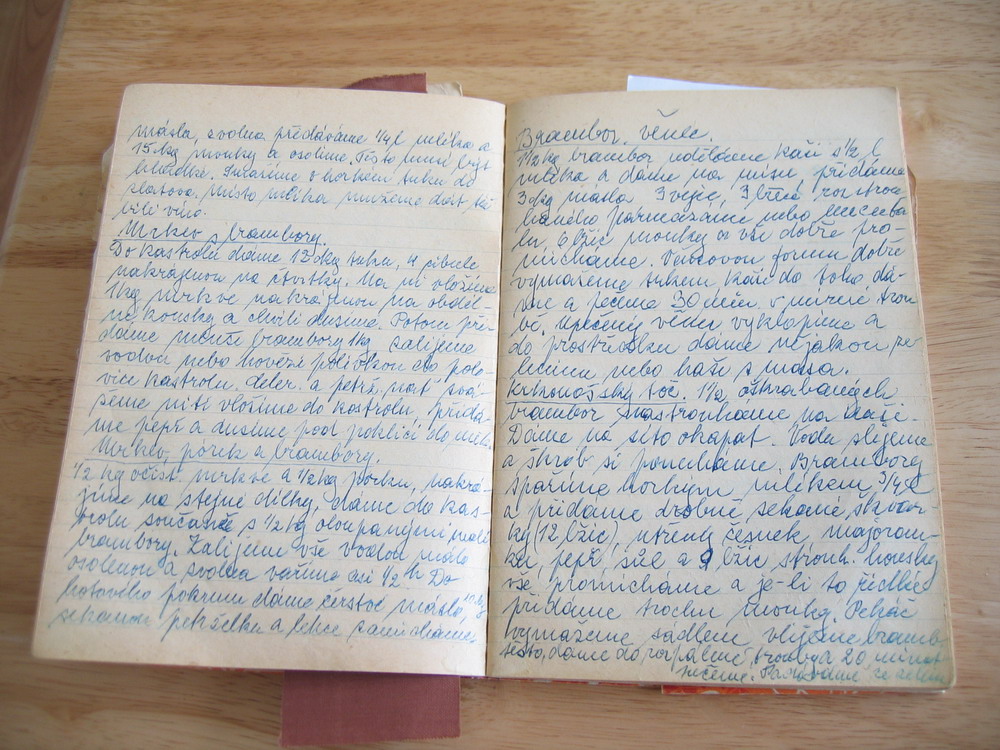 másla, zvolna přidáváme 1/4 l mléka a
15 dkg mouky a osolíme. Těsto musí být
hladké. Smažíme v horkém tuku do
zlatova. Místo mléka můžeme dát též
bílé víno.
Mrkev s brambory.
Do kastrolu dáme 15 dkg tuku, 4 cibule
nakrájenou na čtvrtky. Na ni vložíme
1 kg mrkve nakrájenou na obdél-
né kousky a chvíli dusíme. Potom při-
dáme menší brambory 1 kg zalijeme
vodou nebo hovězí polévkou do polo-
vice kastrolu. celer. a petrž. nať svá-
žeme nití vložíme do kastrolu, přidá-
me pepř a dusíme pod poklicí do měk.
Mrkev, pórek a brambory.
1/2 kg očišt. mrkve a 1/2 kg pórku, nakrá-
jíme na stejné dílky, dáme do kas-
trolu současně s 1/2 kg oloupanými malé
brambory. Zalijeme vše vodou málo
osolenou a zvolna vaříme asi 1/2 h Do
hotového pokrmu dáme čerstvé máslo,
sekanou petrželku a lehce zamícháme.
Brambor. věnec.
1 1/2 kg brambor uděláme kaši s 1/2 l
mléka a dáme na mísu přidáme
3 dkg másla 3 vejce, 3 lžíce rozstrou-
haného parmazánu nebo ementa
lu, 6 lžic mouky a vše dobře pro-
mícháme. Věncovou formu dobře
vymažeme tukem kaši do toho dá-
me a pečeme 30 min. v mírné trou-
bě. Upečený věnec vyklopíme a
do prostředku dáme nějakou ze-
leninu nebo kaši z masa.
Krkonošský soč. 1 1/2 oškrabaných
brambor nastrouháme na kaši.
Dáme na síto okapat. Vodu slijeme
a škrob si ponecháme. Brambory
spaříme horkým mlékem 3/4 l
a přidáme drobně sekané škvar-
ky (12 lžic), utřený česnek, majorán-
ku, pepř, sůl a 9 lžic strouh. housky
vše promícháme a je-li to řídké
přidáme trochu mouky. Pekáč
vymažeme sádlem vlijeme bramb.
těsto, dáme do rozpálené trouby a 20 minut
pečeme. Podáváme se zelím